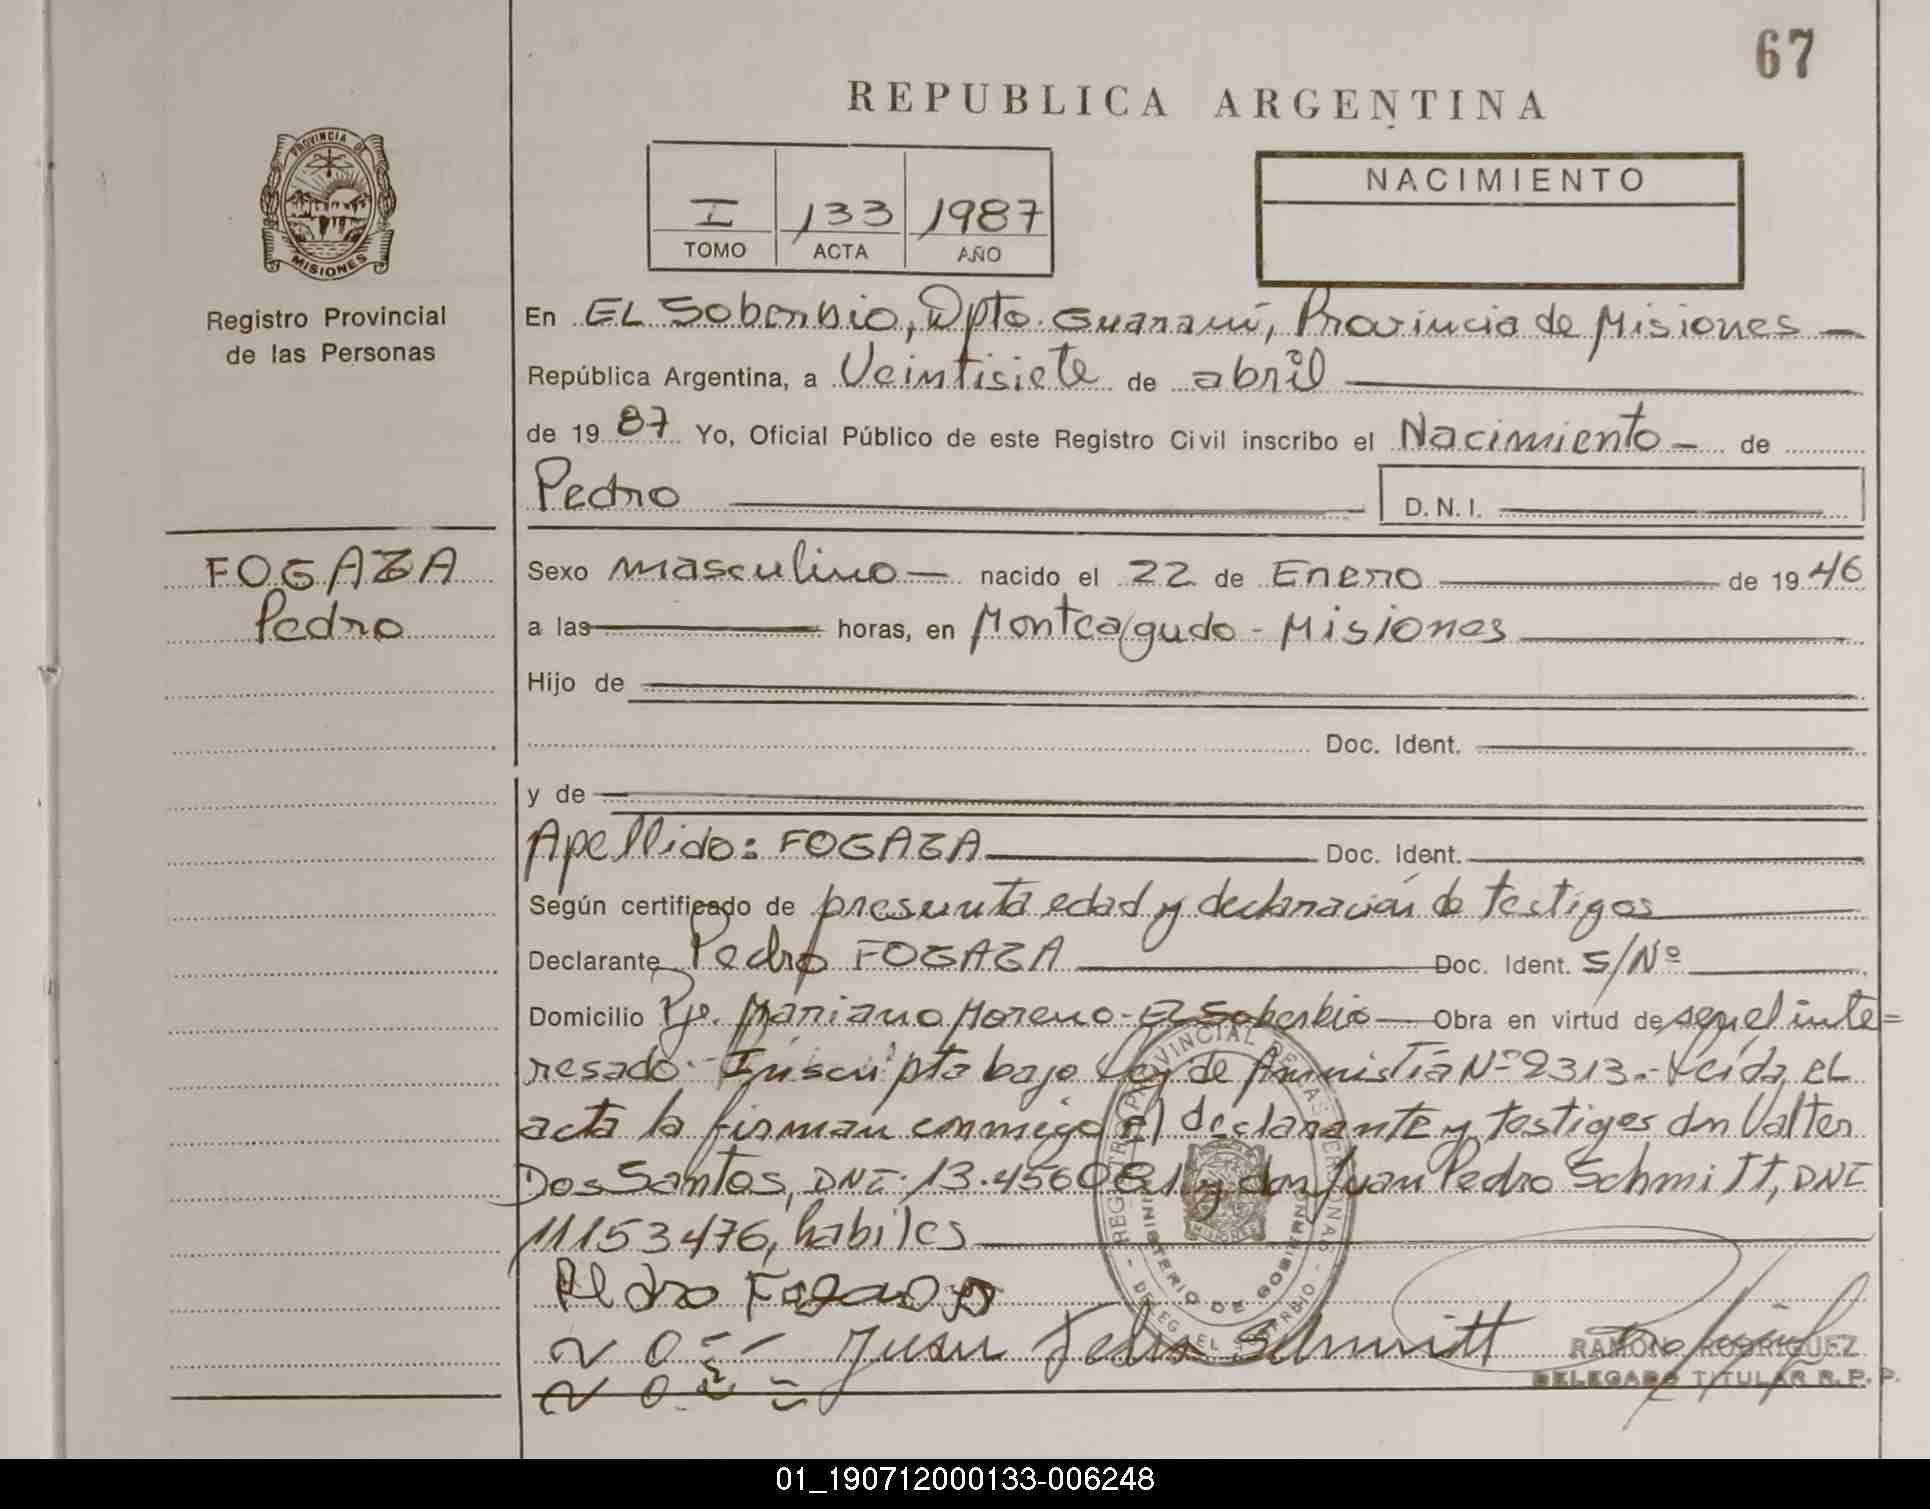 67
REPUBLICA ARGENTINA
PROVINCIA DE
MISIONES
Registro Provincial
de las Personas
I 133 1987
TOMO ACTA AÑO
NACIMIENTO
En EL Soberbio, Dpto. Guaraní, Provincia de Misiones
República Argentina, a Veintisiete de abril
de 1987 Yo, Oficial Público de este Registro Civil inscribo el Nacimiento de
Pedro D.N.I.
FOGAZA
Pedro
Sexo masculino nacido el 22 de Enero de 1946
a las horas, en Monteagudo - Misiones
Hijo de
Doc. Ident.
y de
Apellido: FOGAZA Doc. Ident.
Según certificado de presunta edad y declaración de testigos
Declarante Pedro FOGAZA Doc. Ident. S/Nº
Domicilio Pje. Mariano Moreno - EL Soberbio Obra en virtud de ser el inte=
resado.- Inscripta bajo Ley de Amnistía Nº 2313.- Leída, EL
acta la firman conmigo el declarante y testigos don Valter
Dos Santos, DNI. 13.456081 y don Juan Pedro Schmitt, DNI
11153476, habiles
Pedro Fogaza
Juan Schmitt
RAMON RODRIGUEZ
DELEGADO TITULAR R.P.P.
REGISTRO PROVINCIAL DE LAS PERSONAS
MINISTERIO DE GOBIERNO
DELEG. EL SOBERBIO
01_190712000133-006248